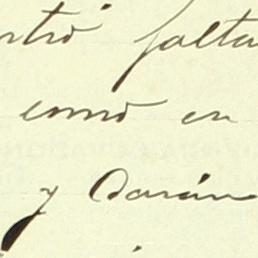 ntró falta
como en
y Darán